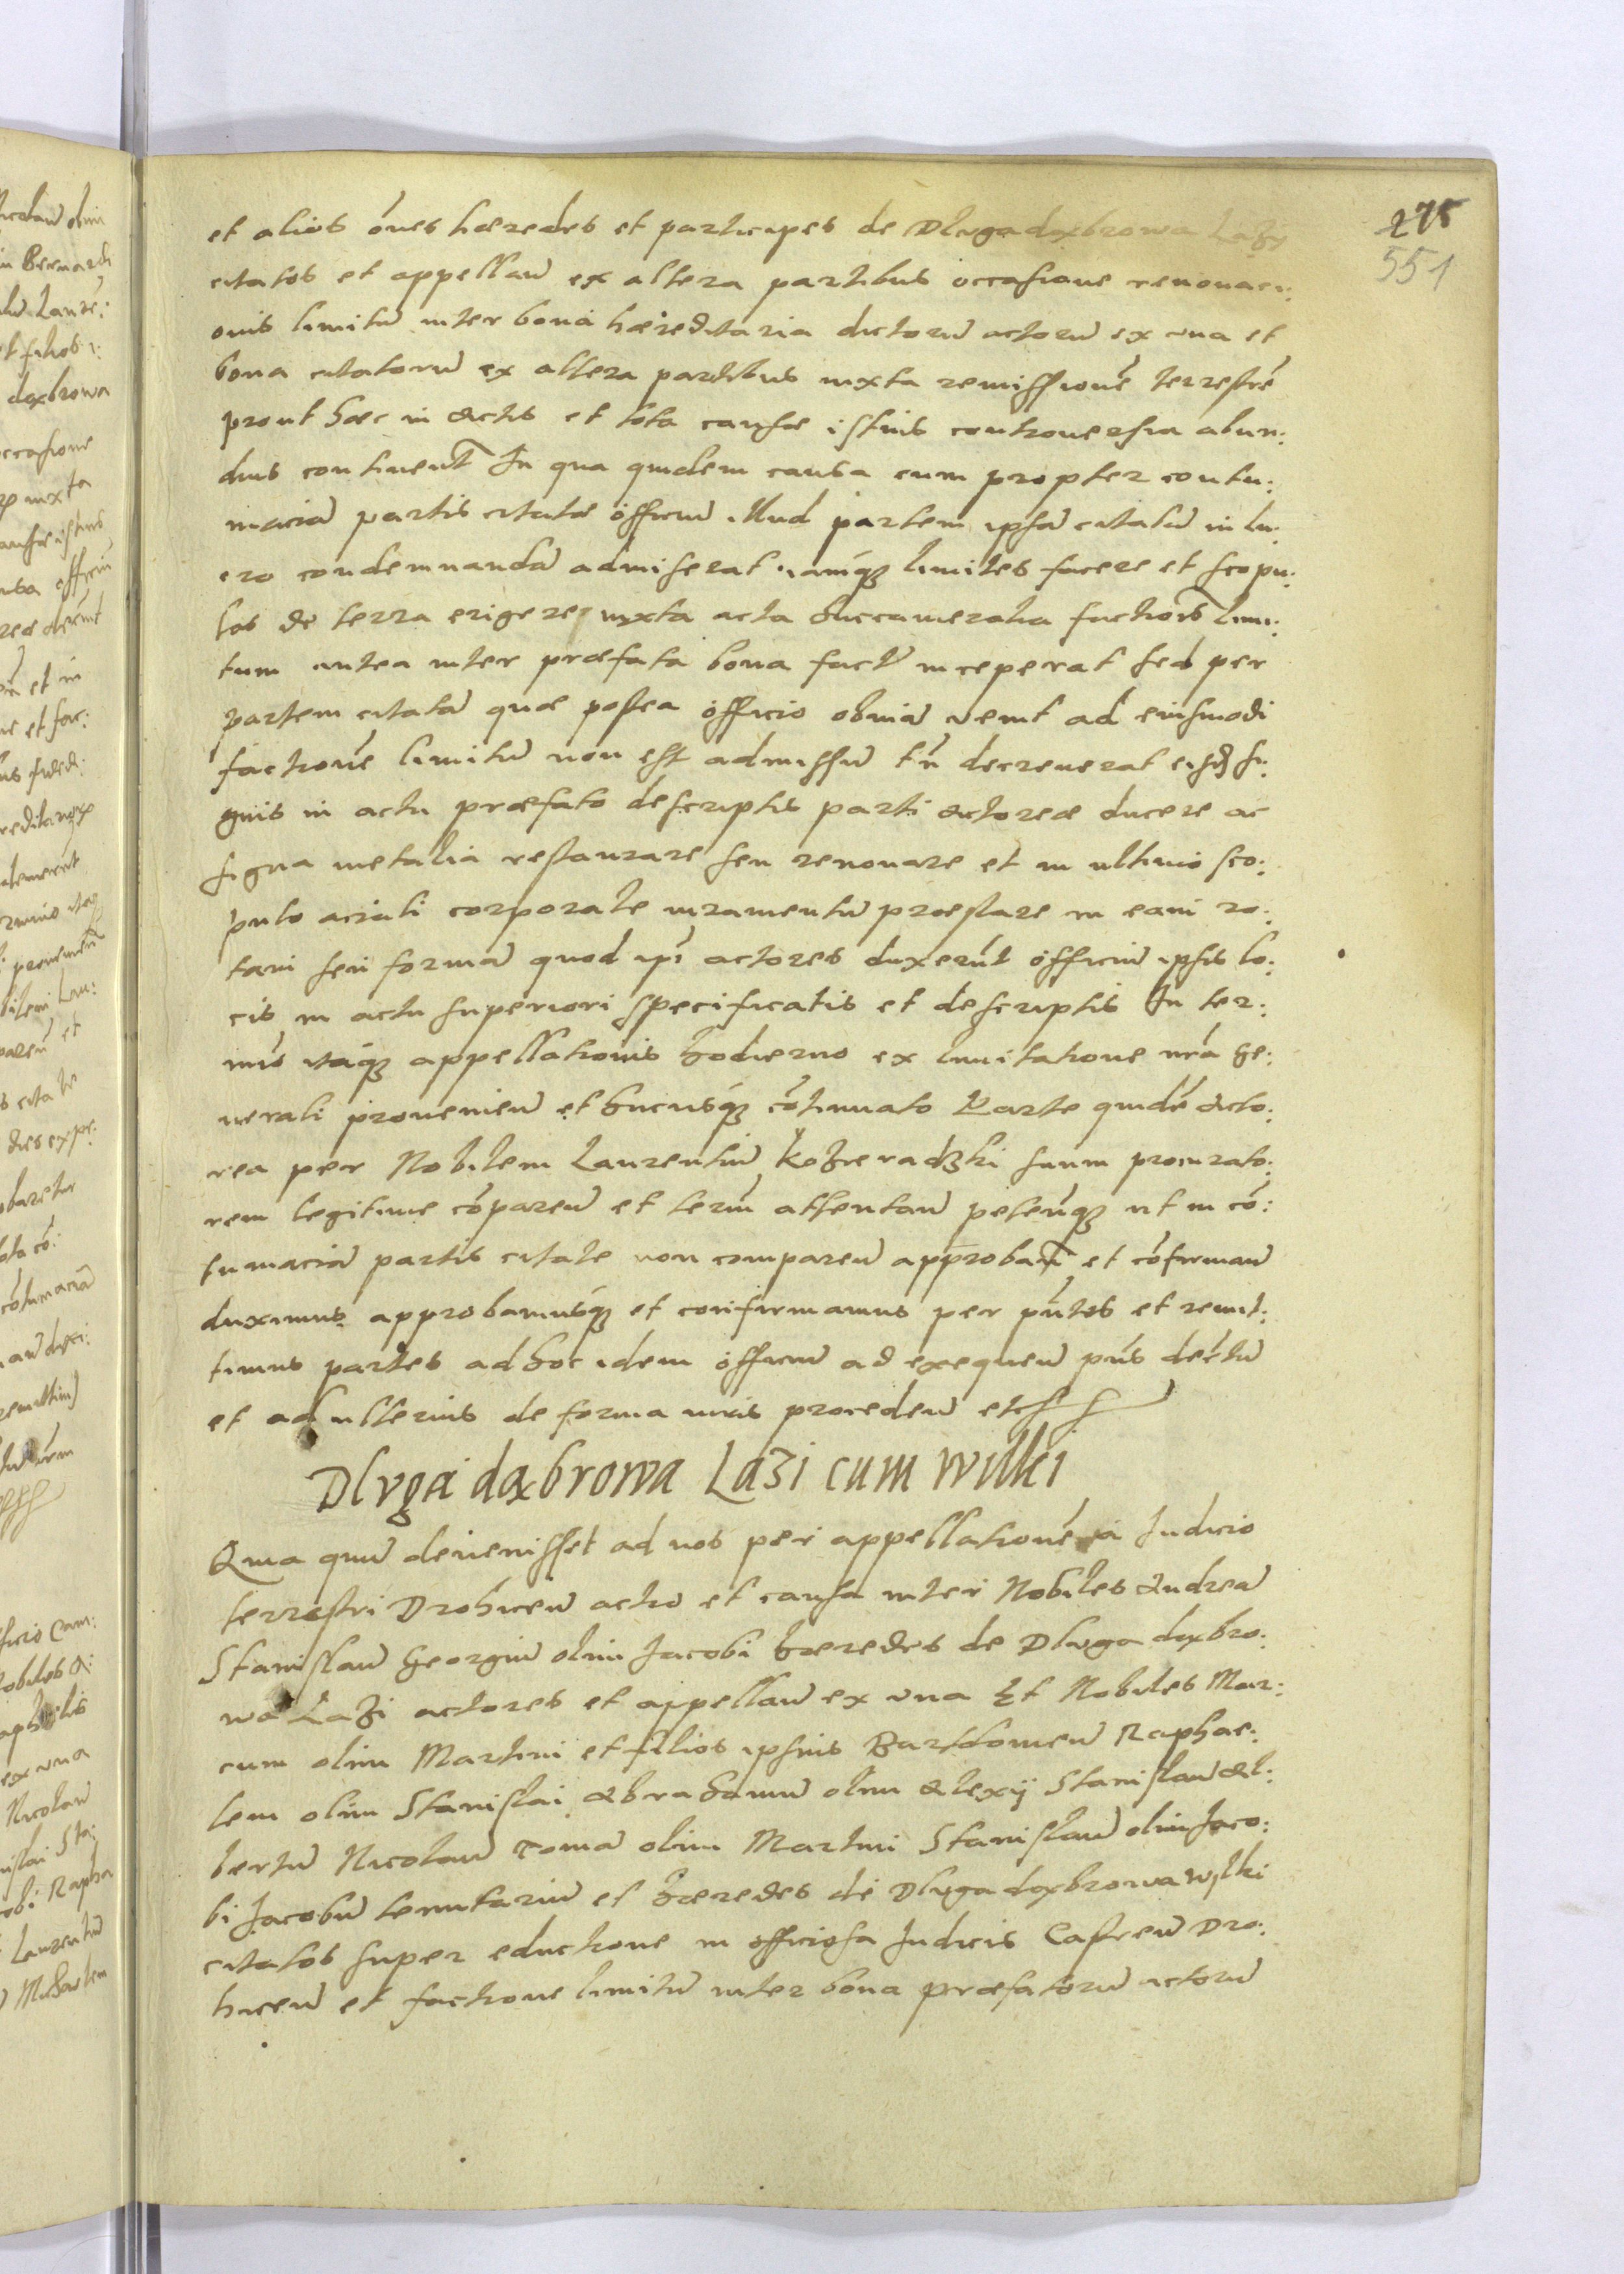 275
551
et alios oēs hæredes et participes de Dlvgadaxbrowa Lazy
citatos et appellan̄ ex altera partibus occasione renouaci:
onis limitū inter bona hæreditaria dictorū actorū ex vna et
bona citatorū ex altera partibus iuxta remissionē terrestrē
prout hæc in actis et tota causæ istius controuersia abun:
dius continent̄ In qua quidem causa cum propter contu:
maciā partis citatæ officiū illud partem ipsā citatā in lu:
cro condemnandā admiserat iamq3 limites facere et scopu:
los de terra erigere iuxta acta succameralia factiōis limi:
tum antea inter præfata bona fact̄ inceperat sed per
partem citatā quæ postea officio obuiā venit ad eiusmodi
factionē limitū non est admissū tn̄ decreuerat eisdē si:
gnis in actu præfato descriptis parti actoreæ ducere ac
signa metalia restaurare seu renouare et in ultimo sco:
pulo aciali corporale iuramentū præstare in eam ro:
tam seu formā quod ip̄i actores duxerūt officiū ipsis lo:
cis in actu superiori specificatis et descriptis In ter:
mīo itaq3 appellationis hodierno ex limitatione nr̄a ge:
nerali prouenien̄ et hucusq3 cōtinuato Parte quidē acto:
rea per Nobilem Laurentiū Kozieradzki suum procurato:
rem legitime cōparen̄ et term̄ attentan̄ petenq3 ut in cō:
tumaciā partis citate non comparen̄ approban̄ et cōfirman̄
duximus approbamusq3 et confirmamus per pn̄tes et remit:
timus partes ad hoc idem officiū ad exequen̄ pn̄s decr̄tū
et ad ulterius de forma iuris proceden̄ etc
Dlvga daxbrowa Lazi cum wilki
Qma quū deuenisset ad nos per appellationē a Iudicio
terrestri Drohicen̄ actio et causa inter Nobiles Andreā
Stanislaū Georgiū olim Jacobi hæredes de Dlvga daxbro:
wa Lazi actores et appellan̄ ex vna Et Nobiles Mar:
cum olim Martini et filios ipsius Bartolomeū Raphae:
lem olim Stanislai Abrahamū olim Alexij Stanislaū Al:
bertū Nicolaū Tomā olim Martini Stanislaū olim Jaco:
bi Jacobū tenutariū et hæredes de Dlvgadaxbrowa Wylki
citatos super eductione in officiosa Iudicis Castren̄ Dro:
hicen̄ et factione limitū inter bona præfatorū actorū